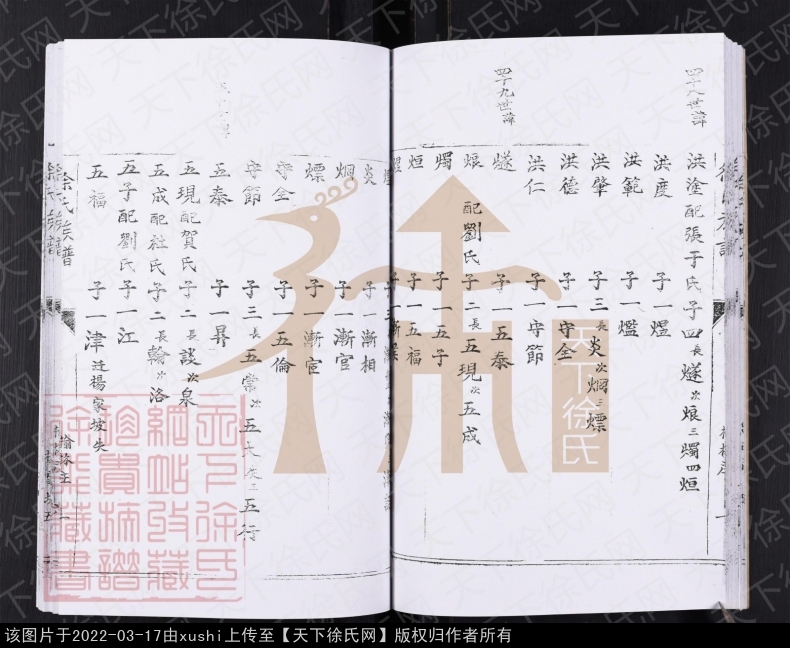 四十八世諱
洪塗配張于氏子四長燧次烺三燭四烜
洪度 子一熅
洪範 子一爁
洪肇 子三長炎次烱三熛
洪德 子一守全
洪仁 子一守節
四十九世諱
燧 子一五泰
烺 配劉氏 子二長五現次五成
燭 子一五子
烜 子一五福
炎 子一漸相
烱 子一漸官
熛 子一漸宦
守全 子一五倫
守節 子三長五常次五大三五行
五泰 子一昇
五現配賀氏 子二長談次泉
五成配杜氏 子二長翰次洛
五子配劉氏 子一江
五福 子一津迁楊家坡失
徐氏族譜
天下徐氏
天下徐氏網
天下徐氏
網站收藏
珍貴柄譜
徐氏藏書
该图片于2022-03-17由xushi上传至【天下徐氏网】版权归作者所有